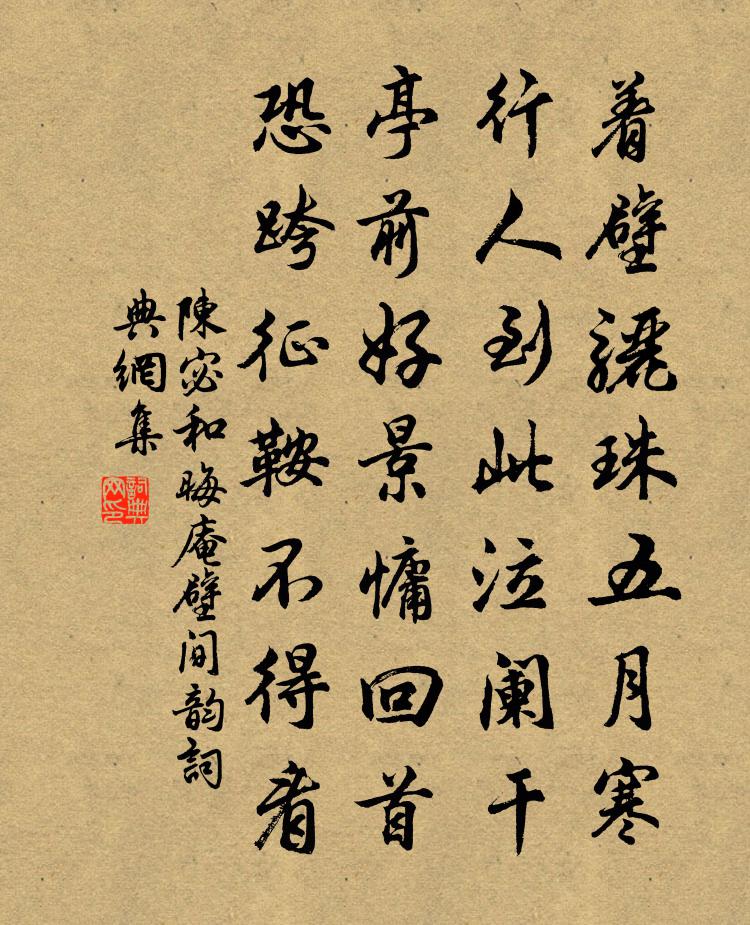 着壁骊珠五月寒
行人到此泣阑干
亭前好景慵回首
恐跨征鞍不得看
陳宓和晦庵壁间韵詞
典網集
詞典网印